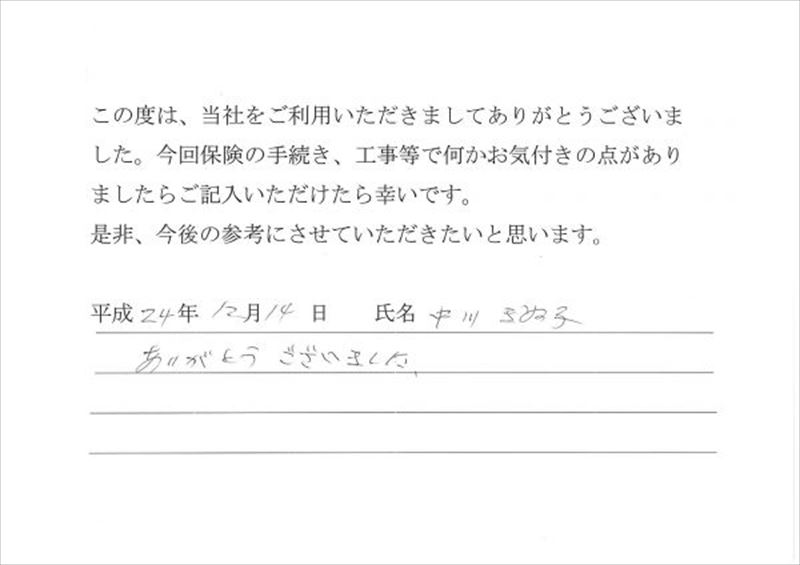 この度は、当社をご利用いただきましてありがとうございま
した。今回保険の手続き、工事等で何かお気付きの点があり
ましたらご記入いただけたら幸いです。
是非、今後の参考にさせていただきたいと思います。
平成24年 12月14日 氏名 中川
ありがとうございました。